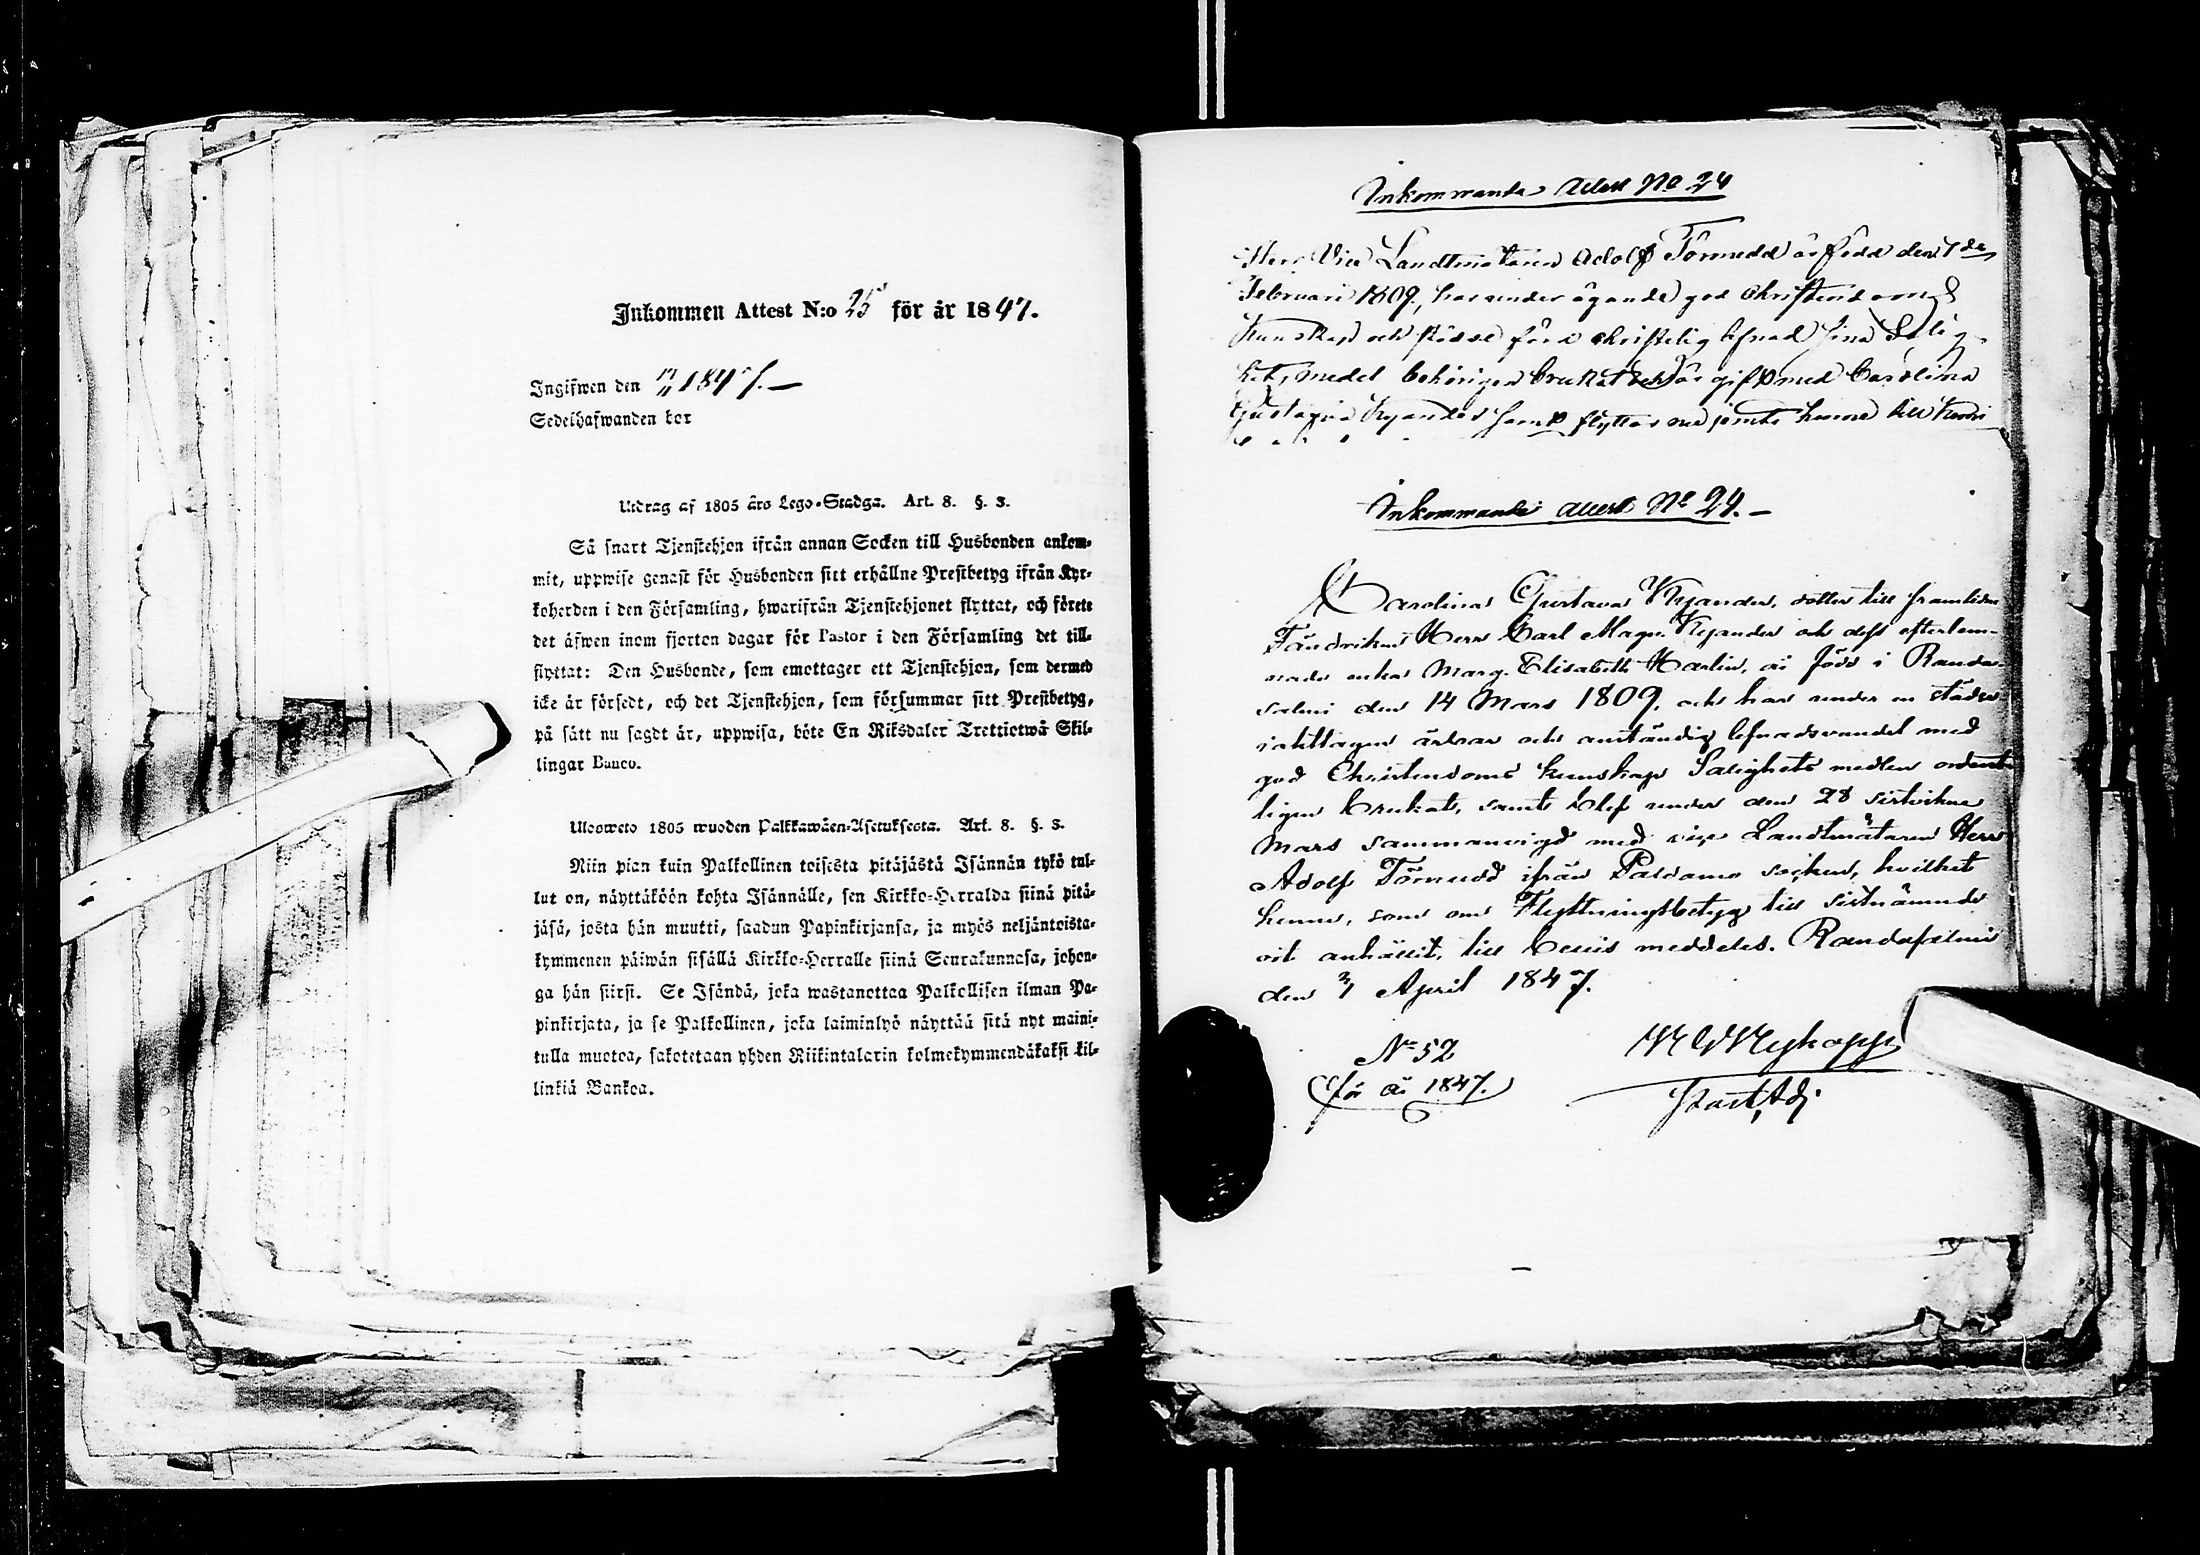 Inkommen Attest N:o 25 för år 1847.
Ingifwen den 17/11 1847.—
Sedelhafwanden bor
Utdrag af 1805 års Lego-Stadga. Art. 8. §. 3.
Så snart Tjenstehjon ifrån annan Socken till Husbonden ankom-
mit, uppwise genast för Husbonden sitt erhållne Prestbetyg ifrån Kyr-
koherden i den Församling, hwarifrån Tjenstehjonet flyttat, och förete
det äfwen inom fjorton dagar för Pastor i den Församling det till-
flyttat: Den Husbonde, som emottager ett Tjenstehjon, som dermed
icke är försedt, och det Tjenstehjon, som försummar sitt Prestbetyg,
på sätt nu sagdt är, uppwisa, böte En Riksdaler Trettiotwå Skil-
lingar Banco.
Ulosweto 1805 wuoden Palkkawäen-Asetuksesta. Art. 8. §. 3.
Niin pian kuin Palkollinen toisesta pitäjästä Isännän tykö tul-
lut on, näyttäköön kohta Isännälle, sen Kirkko-Herralda siinä pitä-
jäsä, josta hän muutti, saadun Papinkirjansa, ja myös neljäntoista-
kymmenen päiwän sisällä Kirkko-Herralle siinä Seurakunnasa, johon-
ga hän siirsi. Se Isändä, joka wastanottaa Palkollisen ilman Pa-
pinkirjata, ja se Palkollinen, joka laiminlyö näyttää sitä nyt maini-
tulla muotoa, sakotetaan yhden Riikintalarin kolmekymmendäkaksi kil-
linkiä Bankoa.
Inkommande Attest No 24
Herr Vice Landtmätaren Adolf Törnudd är född den 1de
Februari 1809, har under ägande god Christendoms
Kunskap och förde christelig lefnad sina Salig-
hets medel behörigen brukat är gift med Carolina
Gustava Kyander samt flyttar nu jemte henne till Kemi
Inkommande attest No 24.—
Carolina Gustava Kyander, dotter till framlidne
Fändriken Herr Carl Magn. Kyander och dess efterlem-
nade enka Marg. Elisabeth Harlin, är född i Randa-
salmi den 14 Mars 1809, och har under en städse
iakttagen ärbar och anständig lefnadsvandel med
god Christendoms kunskap Salighets medlen ordent-
ligen brukat, samt blef under den 28 sistvikne
Mars sammanvigd med vice Landtmätaren Herr
Adolf Törnudd ifrån Paldamo socken, hvilket
henne, som om Flyttningsbetyg till sistnämnde
ort anhållit, till bevis meddelas. Randasalmi
den 3/4 April 1847.
No 52
för år 1847.
Nykopp
Past. Adj.